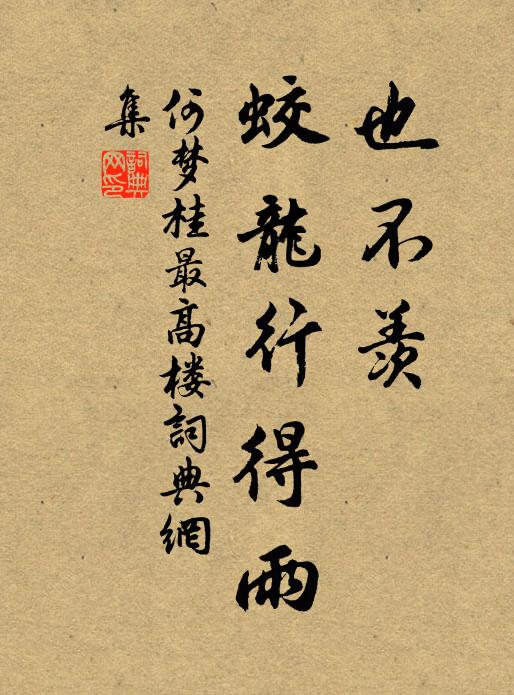 也不羨
蛟龍行得雨
何梦桂最高楼詞典網
集
詞典网印